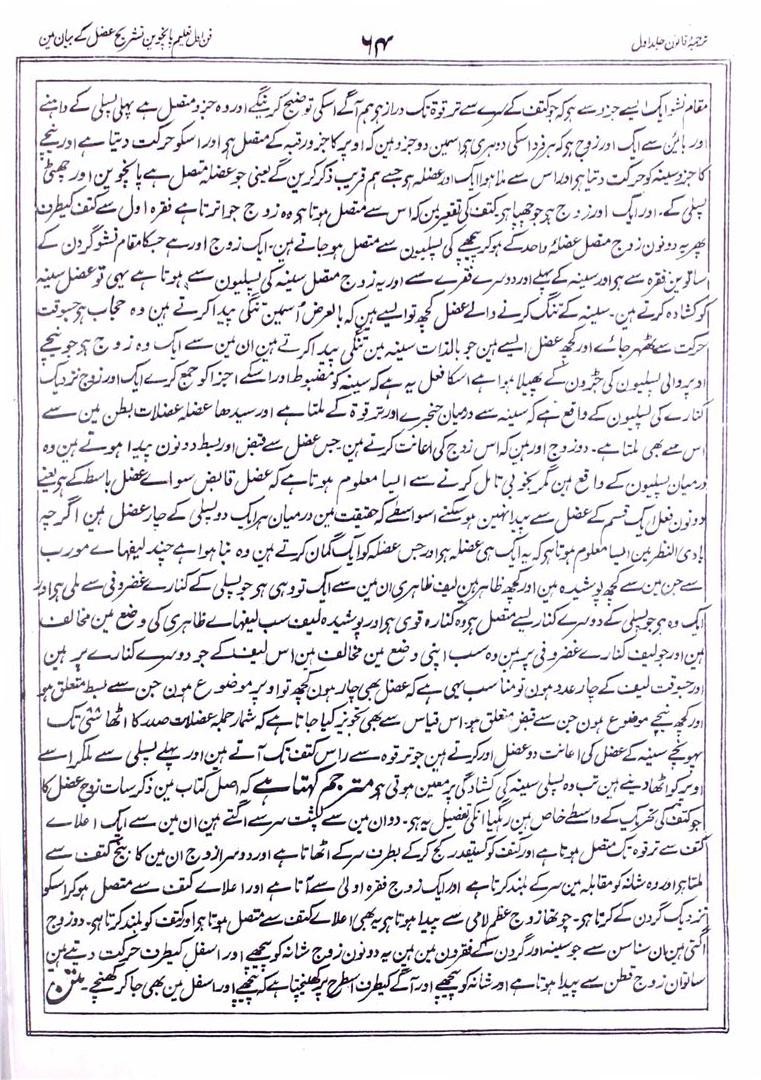 ترجمۂ قانون جلد اول
۶۴
فن اول تعلیم پانچوین تشریح عضل کے بیان مین
مقام نشو ایک ایسے جزو سے ہو کہ جو کتف کے سرے سے ترقوۃ تک دراز ہو ہم آگے اسکی توضیح کرینگے اور وہ جزو متصل ہے پہلی پسلی کے داہنے
اور بائین سے ایک اور زوج ہو کہ ہر فرد اسکی دوہری ہو اسمین دو جزو ہین کہ اوپر کا جزو رقبہ کے متصل ہو اور اسکو حرکت دیتا ہے اور نیچے
کا جزو سینہ کو حرکت دیتا ہو اور اس سے ملا ہوا ایک اور عضلہ ہو جسے ہم قریب ذکر کرین گے یعنی جو عضلہ متصل ہے پانچوین اور چھٹی
پسلی کے۔ اور ایک اور زوج ہو جو چھپا ہو کتف کی تقعیر مین کہ اس سے متصل ہوتا ہو وہ زوج جو اترتا ہے فقرہ اول سے کتف کیطرف
پھر یہ دونون زوج مثل عضلۂ واحد کے ہو کر پیچھے کی پسلیون سے متصل ہو جاتے ہین۔ ایک زوج اور ہے جسکا مقام نشو گردن کے
ساتوین فقرہ سے ہو اور سینہ کے پہلے اور دوسرے فقرے سے اور یہ زوج متصل سینہ کی پسلیون سے ہوتا ہے یہی تو عضل سینہ
کو کشادہ کرتے ہین۔ سینہ کے تنگ کرنے والے عضل کچھ تو ایسے ہین کہ بالعرض اُسمین تنگی پیدا کرتے ہین وہ حجاب ہو جسوقت
حرکت سے ٹھہر جائے اور کچھ عضل ایسے ہین جو بالذات سینہ مین تنگی پیدا کرتے ہین ان مین سے ایک وہ زوج ہو جو نیچے
اوپر والی پسلیون کی جڑون کے پھیلا ہوا ہے اسکا فعل یہ ہے کہ سینہ کو مضبوط اور اسکے اجزا کو جمع کرے ایک اور زوج نزدیک
کنارے کی پسلیون کے واقع ہے کہ سینہ سے درمیان خنجرے اور ترقوۃ کے ملتا ہے اور سیدھا عضلہ عضلات بطن مین سے
اس سے بھی ملتا ہے۔ دو زوج اور ہین کہ اس زوج کی اعانت کرتے ہین جس عضل سے قبض اور بسط دونون پیدا ہوتے ہین وہ
درمیان پسلیون کے واقع ہین مگر بخوبی تامل کرنے سے ایسا معلوم ہوتا ہے کہ عضل قابض سواے عضل باسط کے ہو یعنے
دونون فعل ایک قسم کے عضل سے پیدا نہین ہو سکتے اسواسطے کہ حقیقت مین درمیان ہر ایک دو پسلی کے چار عضل ہین اگرچہ
بادی النظر مین ایسا معلوم ہوتا ہو کہ یہ ایک ہی عضلہ ہو اور جس عضلہ کو ایک گمان کرتے ہین وہ بنا ہوا ہے چند لیفہاے مورب
سے جن مین سے کچھ پوشیدہ ہین اور کچھ ظاہر ہین لیف ظاہری ان مین سے ایک تو وہی ہو جو پسلی کے کنارے غضروفی سے ملی ہو اور
ایک وہ ہو جو پسلی کے دوسرے کنارے سے متصل ہو وہ کنارہ قوی ہو اور پوشیدہ لیف سب لیفہاے ظاہری کی وضع مین مخالف
ہین اور جو لیف کنارے غضروفی پر ہین وہ سب اپنی وضع مین مخالف ہین اس لیف کے جو دوسرے کنارے پر ہین
اور جسوقت لیف کے چار عدد ہون تو مناسب یہی ہے کہ عضل بھی چار ہون کچھ تو اوپر موضوع ہون جن سے بسط متعلق ہو
اور کچھ نیچے موضوع ہون جن سے قبض متعلق ہو۔ اس قیاس سے بھی تجویز کیا جاتا ہے کہ شمار جملہ عضلات صدر کا اٹھاسی تک
پہونچے سینہ کے عضل کی اعانت دو عضل اور کرتے ہین جو ترقوہ سے راس کتف تک آتے ہین اور پہلے پسلی سے ملکر اسے
اوپر کو اٹھا دیتے ہین تب وہ پسلی سینہ کی کشادگی پر معین ہوتی ہو مترجم کہتا ہے کہ اصل کتاب مین ذکر سات زوج عضل کا
جو کتف کی تحریک کے واسطے خاص ہین رہگیا انکی تفصیل یہ ہو۔ دو ان مین سے پشت سر سے اگتے ہین ان مین سے ایک اعلاے
کتف سے ترقوہ تک متصل ہوتا ہے اور کتف کو کسیقدر کج کرکے بطرف سر کے اٹھاتا ہے اور دوسرا زوج ان مین کا بیخ کتف سے
ملتا ہو اور وہ شانہ کو مقابلہ مین سر کے بلند کرتا ہے اور ایک زوج فقرہ اولیٰ سے آتا ہے اور اعلاے کتف سے متصل ہو کر اسکو
نزدیک گردن کے کرتا ہو۔ چوتھا زوج عظم لامی سے پیدا ہوتا ہو یہ بھی اعلاے کتف سے متصل ہوتا ہو اور کتف کو بلند کرتا ہو۔ دو زوج
اگتی ہین ان سناسن سے جو سینہ اور گردن کے فقرون مین ہین یہ دونون زوج شانہ کو پیچھے اور اسفل کیطرف حرکت دیتے ہین
ساتوان زوج قطن سے پیدا ہوتا ہے اور شانہ کو پیچھے اور آگے کیطرف اسطرح پر کھینچتا ہے کہ پیچھے اور اسفل مین بھی جا کر کھنچے۔ متن